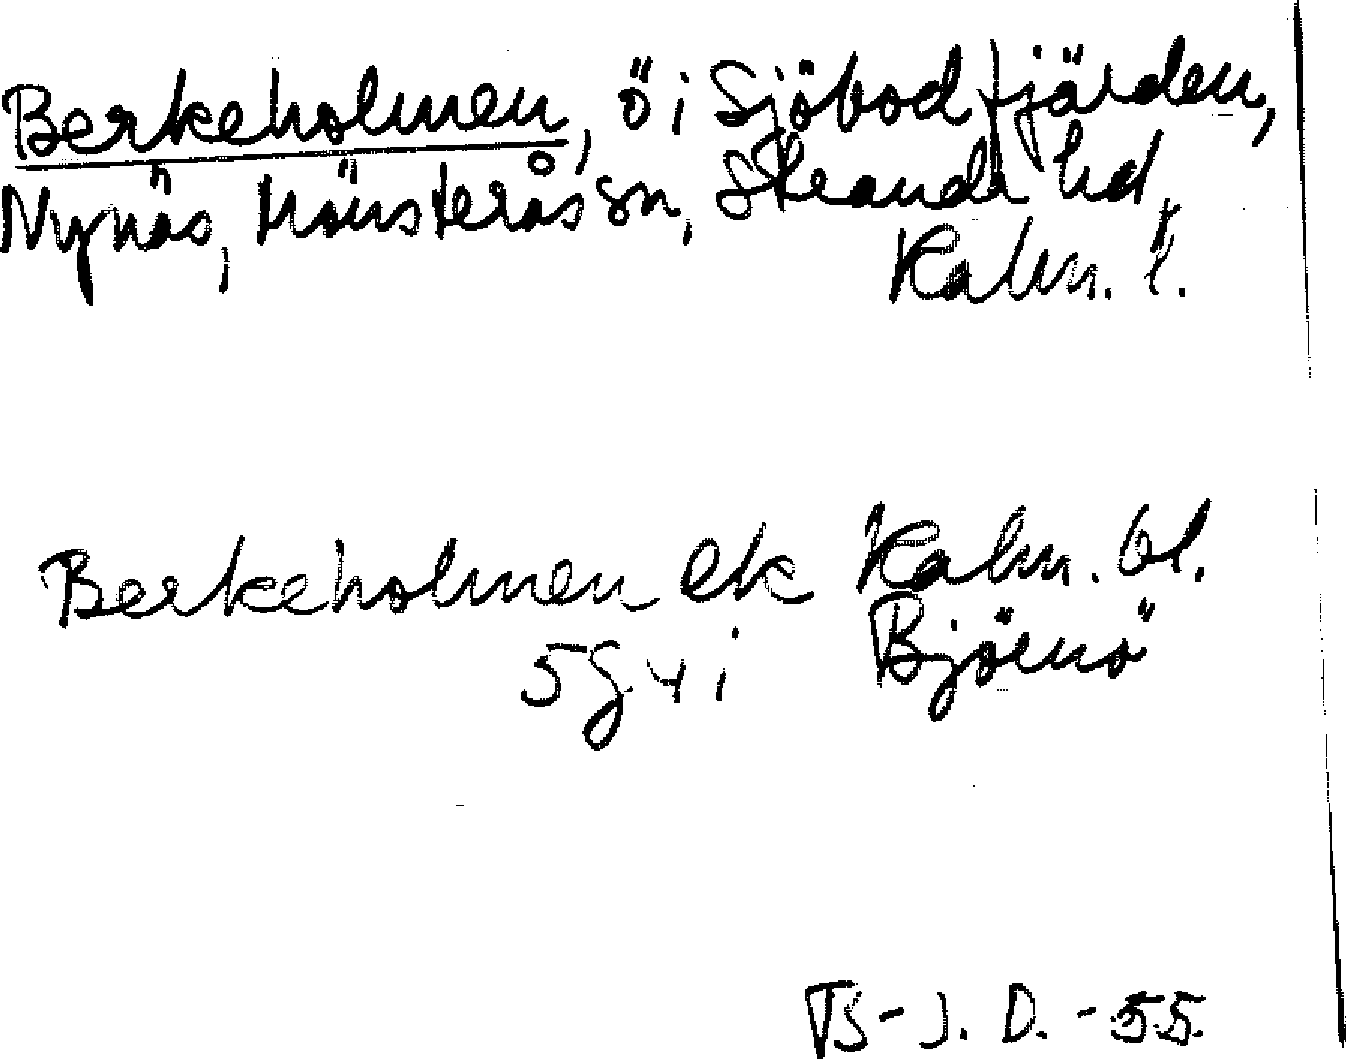 Berkeholmen, ö i Sjöbodfjärden,
Nynäs, Mönsterås sn, Stranda hd,
Kalm. l.
Berkeholmen ek Kalm. bl.
5g 4 i Björnö
B-J. D. -55.